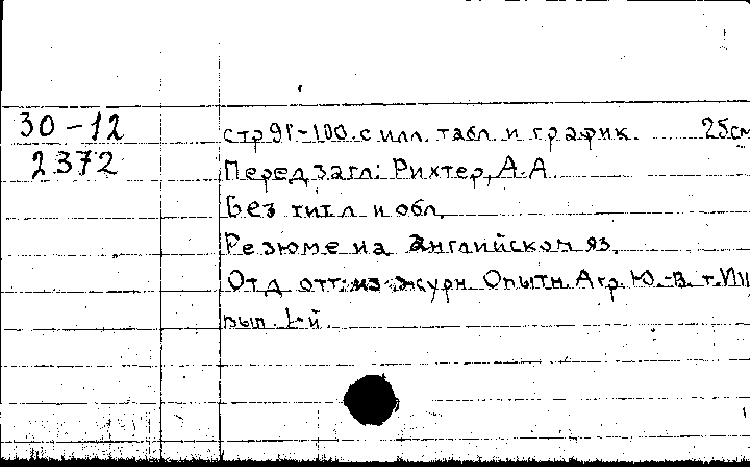 30-12
2372
стр 91-100. с илл. табл. и график. 25см
Перед загл: Рихтер, А.А.
Без тит л и обл.
Резюме на английском яз.
Отд отт. из журн. Опытн. Агр. Ю.-В. т.
вып. 1-й.